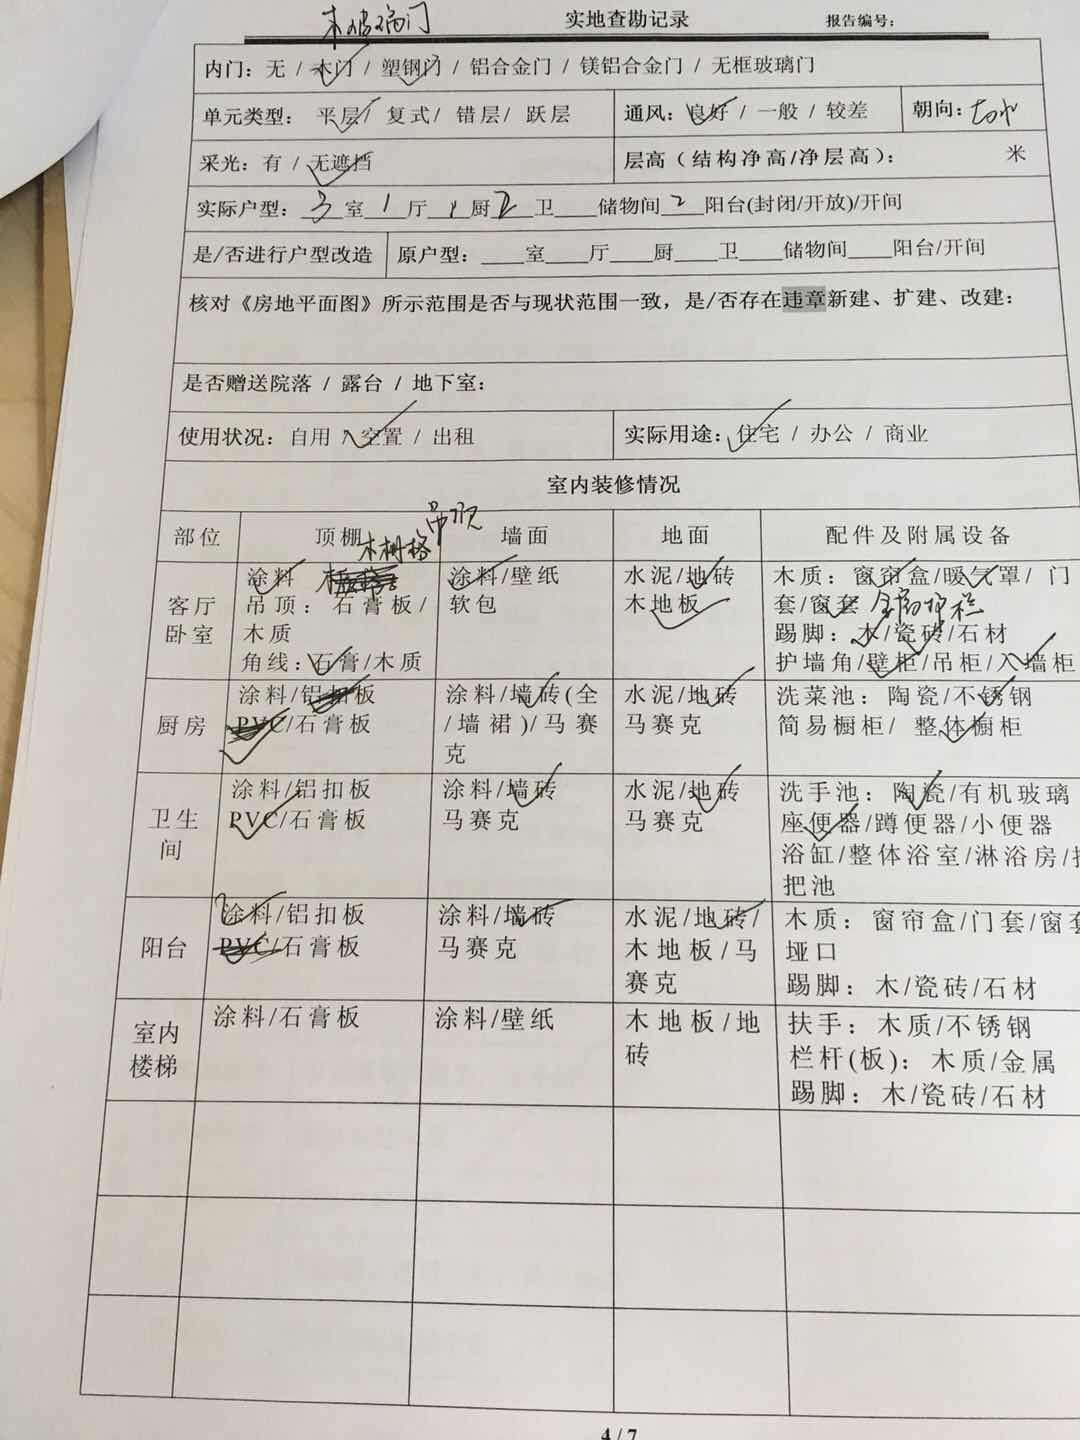 木玻璃门
实地查勘记录 报告编号:
内门: 无 / 木门 / 塑钢门 / 铝合金门 / 镁铝合金门 / 无框玻璃门
单元类型: 平层/ 复式/ 错层/ 跃层 通风: 良好 / 一般 / 较差 朝向:
采光: 有 / 无遮挡 层高(结构净高/净层高): 米
实际户型: 3 室 1 厅 1 厨 2 卫____储物间 2 阳台(封闭/开放)/开间
是/否进行户型改造 原户型:____室____厅____厨____卫____储物间____阳台/开间
核对《房地平面图》所示范围是否与现状范围一致，是/否存在违章新建、扩建、改建:
是否赠送院落 / 露台 / 地下室:
使用状况: 自用 / 空置 / 出租 实际用途: 住宅 / 办公 / 商业
室内装修情况
部位 顶棚 墙面 地面 配件及附属设备
木栅格 吊顶
客厅
卧室
涂料
吊顶: 石膏板/
木质
角线: 石膏/木质
涂料/壁纸
软包
水泥/地砖
木地板
木质: 窗帘盒/暖气罩/ 门
套/窗套 金属护栏
踢脚: 木/瓷砖/石材
护墙角/壁柜/吊柜/入墙柜
厨房
涂料/铝扣板
PVC/石膏板
涂料/墙砖(全
/墙裙)/马赛
克
水泥/地砖
马赛克
洗菜池: 陶瓷/不锈钢
简易橱柜/ 整体橱柜
卫生
间
涂料/铝扣板
PVC/石膏板
涂料/墙砖
马赛克
水泥/地砖
马赛克
洗手池: 陶瓷/有机玻璃
座便器/蹲便器/小便器
浴缸/整体浴室/淋浴房/
把池
阳台
涂料/铝扣板
PVC/石膏板
涂料/墙砖
马赛克
水泥/地砖/
木地板/马
赛克
木质: 窗帘盒/门套/窗套
垭口
踢脚: 木/瓷砖/石材
室内
楼梯
涂料/石膏板
涂料/壁纸
木地板/地
砖
扶手: 木质/不锈钢
栏杆(板): 木质/金属
踢脚: 木/瓷砖/石材
4 / 7